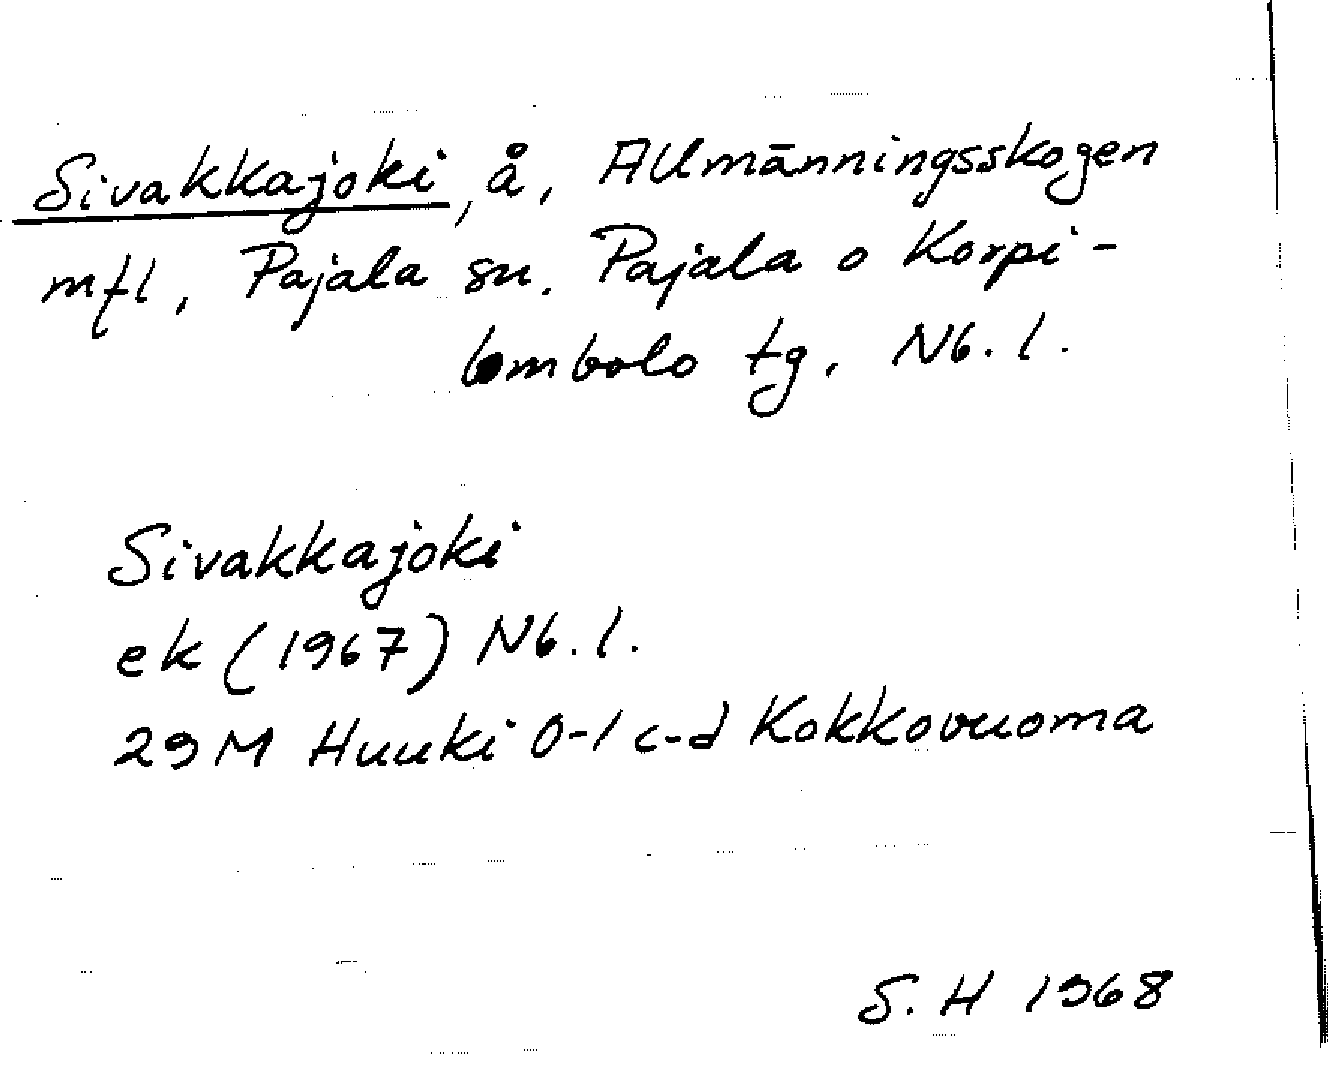 Sivakkajoki, å, Allmänningsskogen
mfl, Pajala sn. Pajala o Korpi-
lombolo tg. Nb. l.
Sivakkajoki
ek (1967) Nb. l.
29 M Huuki 0-1 c-d Kokkovuoma
S. H 1968